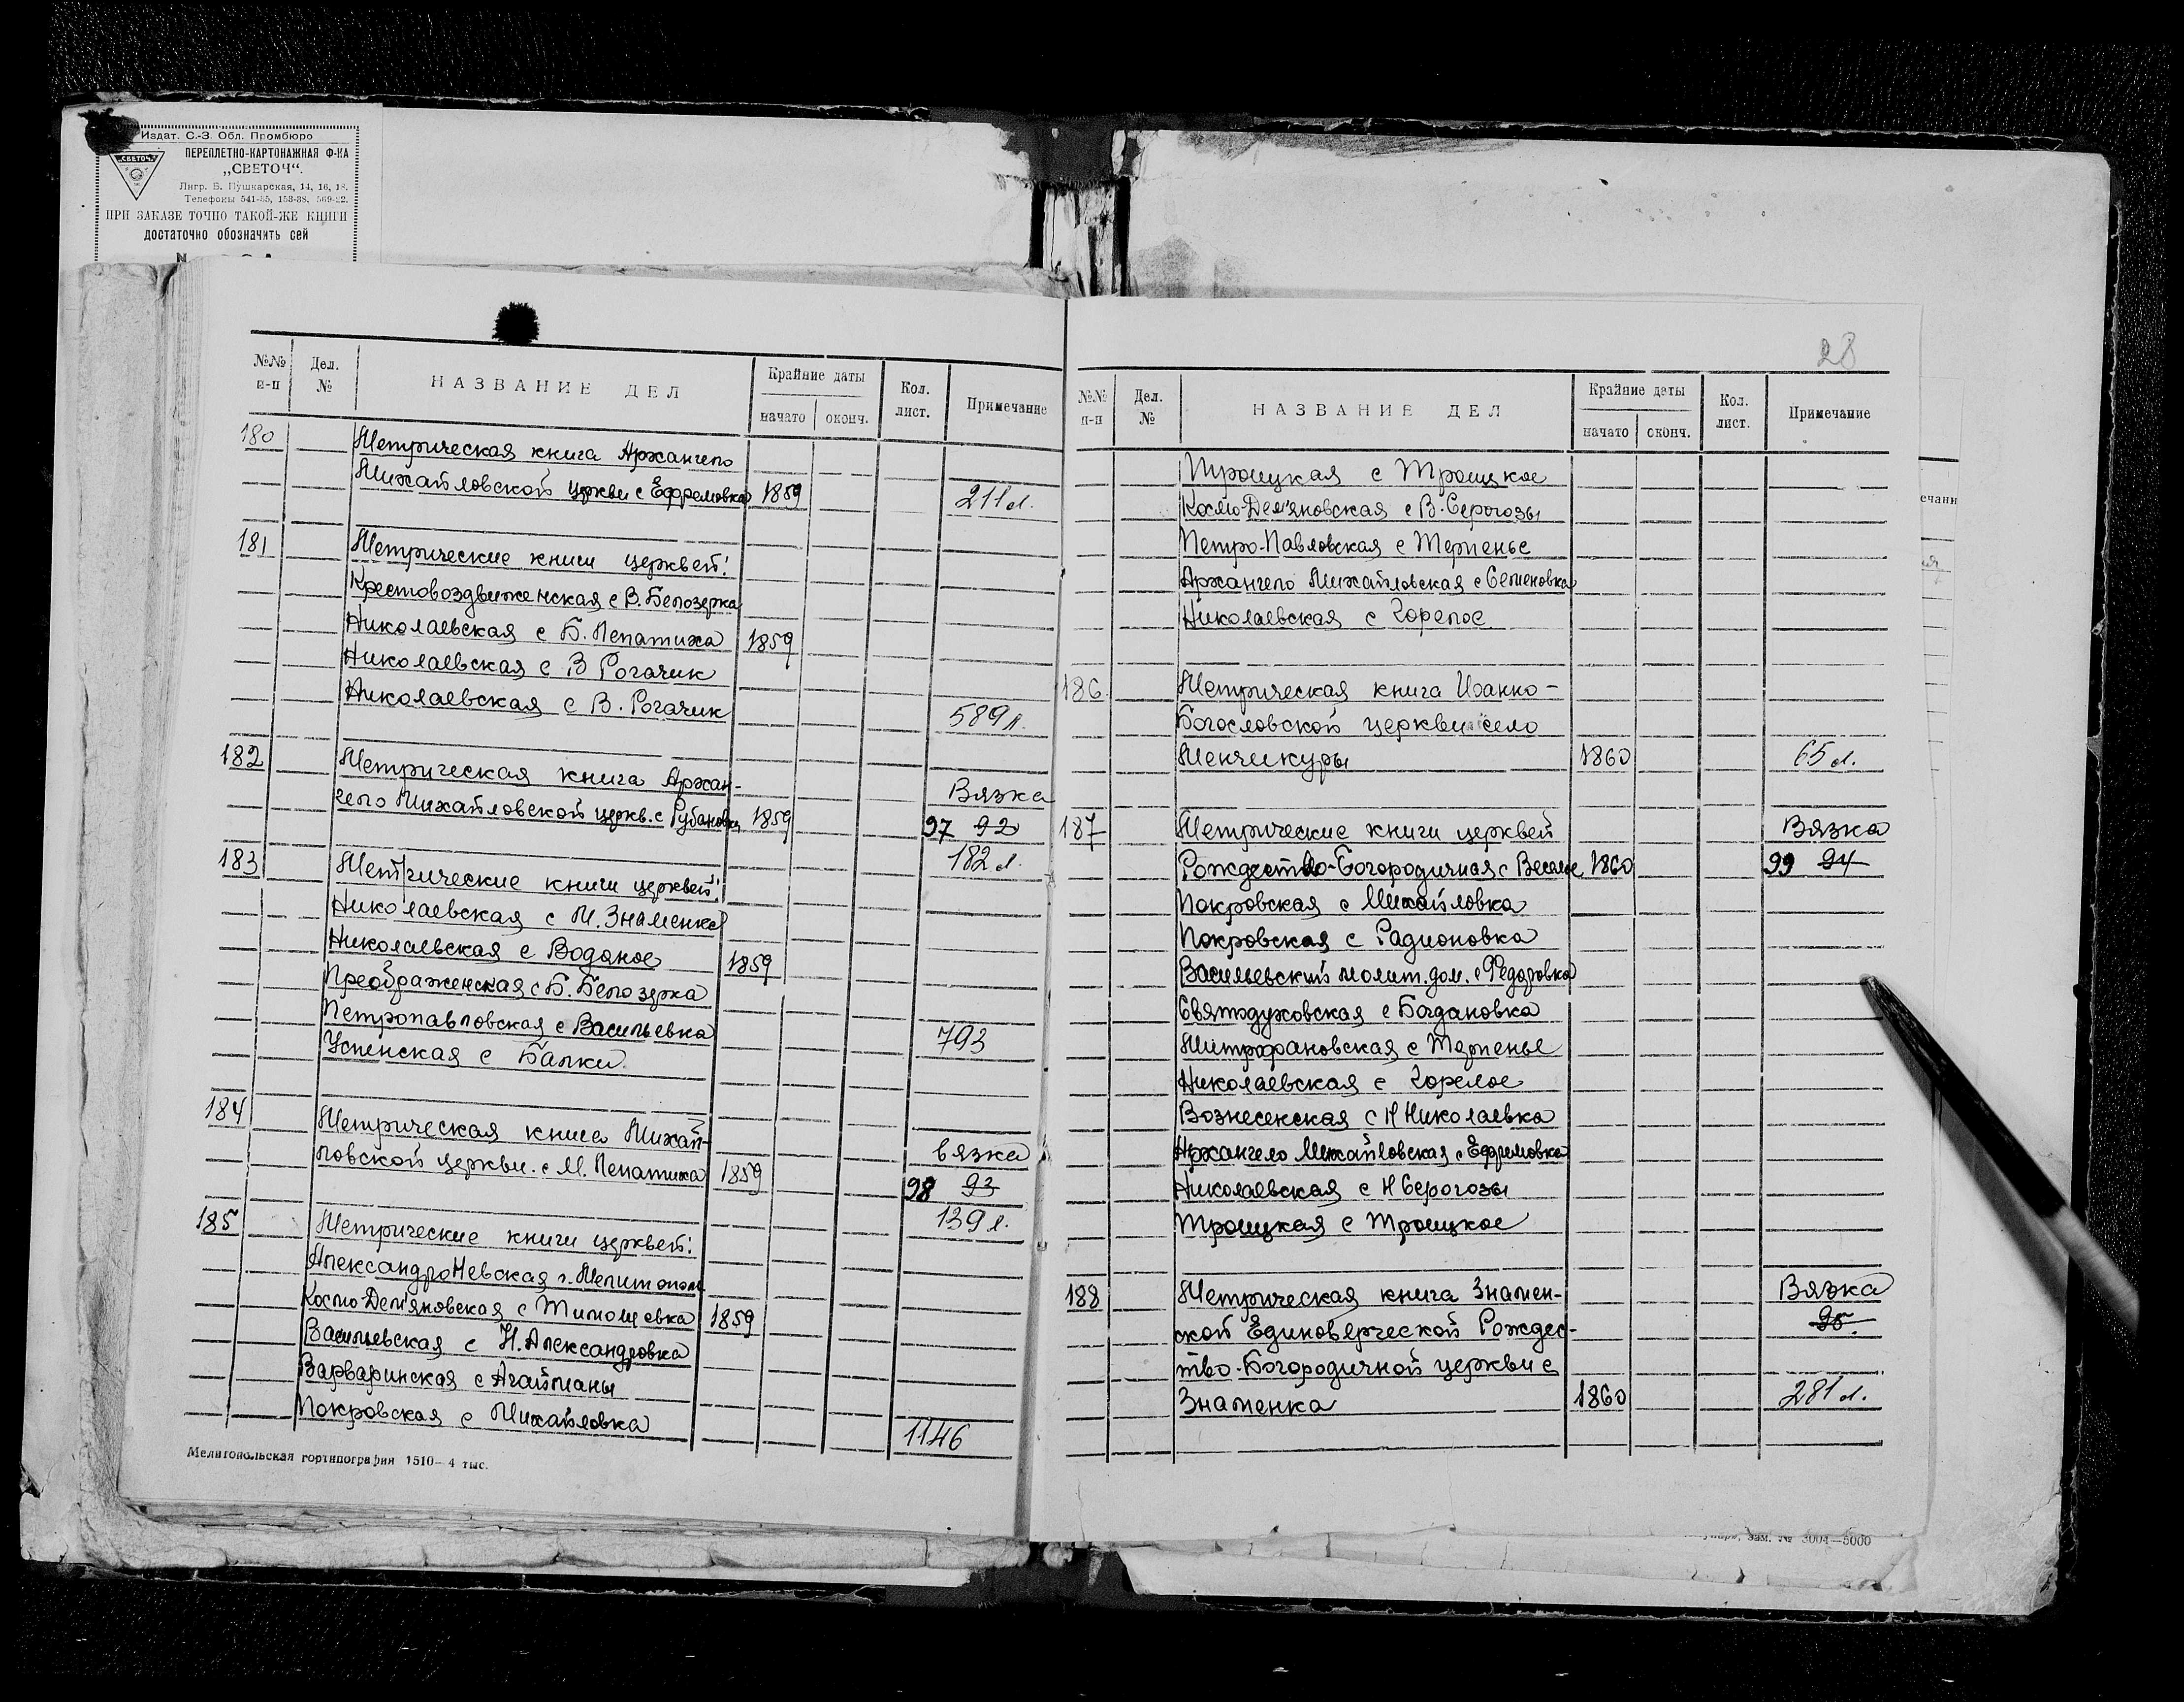 Издат. С.-З. Обл. Промбюро
ПЕРЕПЛЕТНО-КАРТОНАЖНАЯ Ф-КА
„СВЕТОЧ“.
СВЕТОЧ
Лнгр. Б. Пушкарская, 14, 16, 18.
Телефоны 541-35, 153-38, 569-22.
ПРИ ЗАКАЗЕ ТОЧНО ТАКОЙ-ЖЕ КНИГИ
достаточно обозначить сей
№№ п-п Дел. № НАЗВАНИЕ ДЕЛ Крайние даты начато оконч. Кол. лист. Примечание
180 Метрическая книга Архангело
Михайловской церкви с Ефремовка 1859 211 л.
181 Метрические книги церквей:
Крестовоздвиженская с В. Белозерка
Николаевская с Б. Лепатиха 1859
Николаевская с В Рогачик
Николаевская с В. Рогачик 589 л.
182 Метрическая книга Архан-
гело Михайловской церкв. с Рубановка 1859
Вязка
97 92
182 л.
183 Метрические книги церквей:
Николаевская с М. Знаменка
Николаевская с Водяное 1859
Преображенская с Б. Белозерка
Петропавловская с Васильевка 793
Успенская с Балки
184 Метрическая книга Михай-
ловской церкви. с М. Лепатиха 1859
вязка
98 93
139 л.
185 Метрические книги церквей:
Александро Невская г. Мелитополь
Космо-Дем'яновская с Тимошевка 1859
Васильевская с Н. Александровка
Варваринская с Агайманы
Покровская с Михайловка 1146
Мелитопольская гортипография 1510—4 тыс.
28
№№ п-п Дел. № НАЗВАНИЕ ДЕЛ Крайние даты начато оконч. Кол. лист. Примечание
Троицкая с Троицкое
Космо-Дем'яновская с В. Серогозы
Петро-Павловская с Терпенье
Архангело Михайловская с Семеновка
Николаевская с Горелое
186 Метрическая книга Иоанно-
Богословской церкви село
Менчикуры 1860 65 л.
187 Метрические книги церквей Вязка
Рождество-Богородичная с Веселое 1860 99 94
Покровская с Михайловка
Покровская с Радионовка
Васильевский молит. дом. с Федоровка
Святодуховская с Богдановка
Митрофановская с Терпенье
Николаевская с Горелое
Вознесенская с Н Николаевка
Архангело Михайловская с Ефремовка
Николаевская с Н Серогозы
Троицкая с Троицкое
188 Метрическая книга Знамен- Вязка
ской Единоверческой Рождес- 95.
тво-Богородичной церкви с
Знаменка 1860 281 л.
ечани
зам. № 3004—5000